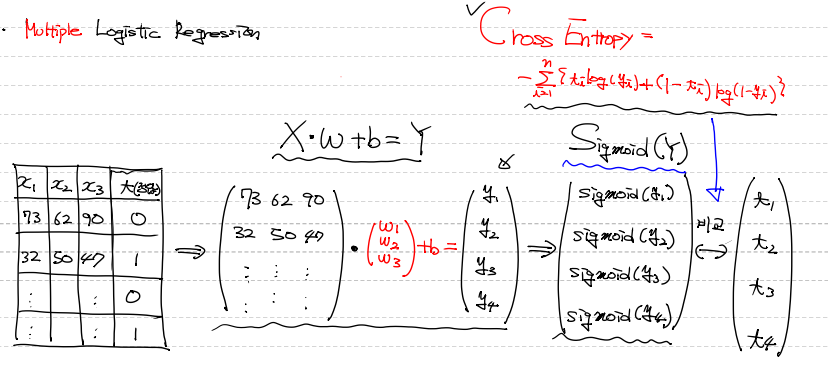 · Multiple Logistic Regression
✓ Cross Entropy =
- Σ i=1 n {tᵢ log(yᵢ) + (1 - tᵢ) log(1-yᵢ)}
X · w + b = Y
Sigmoid(Y)
x₁ x₂ x₃ t(정답)
73 62 90 0
32 50 47 1
⋮ ⋮ 0
⋮ ⋮ 1
⇒
73 62 90
32 50 47
⋮ ⋮ ⋮
⋮ ⋮ ⋮
·
w₁
w₂
w₃
+ b =
y₁
y₂
y₃
y₄
⇒
sigmoid(y₁)
sigmoid(y₂)
sigmoid(y₃)
sigmoid(y₄)
비교
↔
t₁
t₂
t₃
t₄